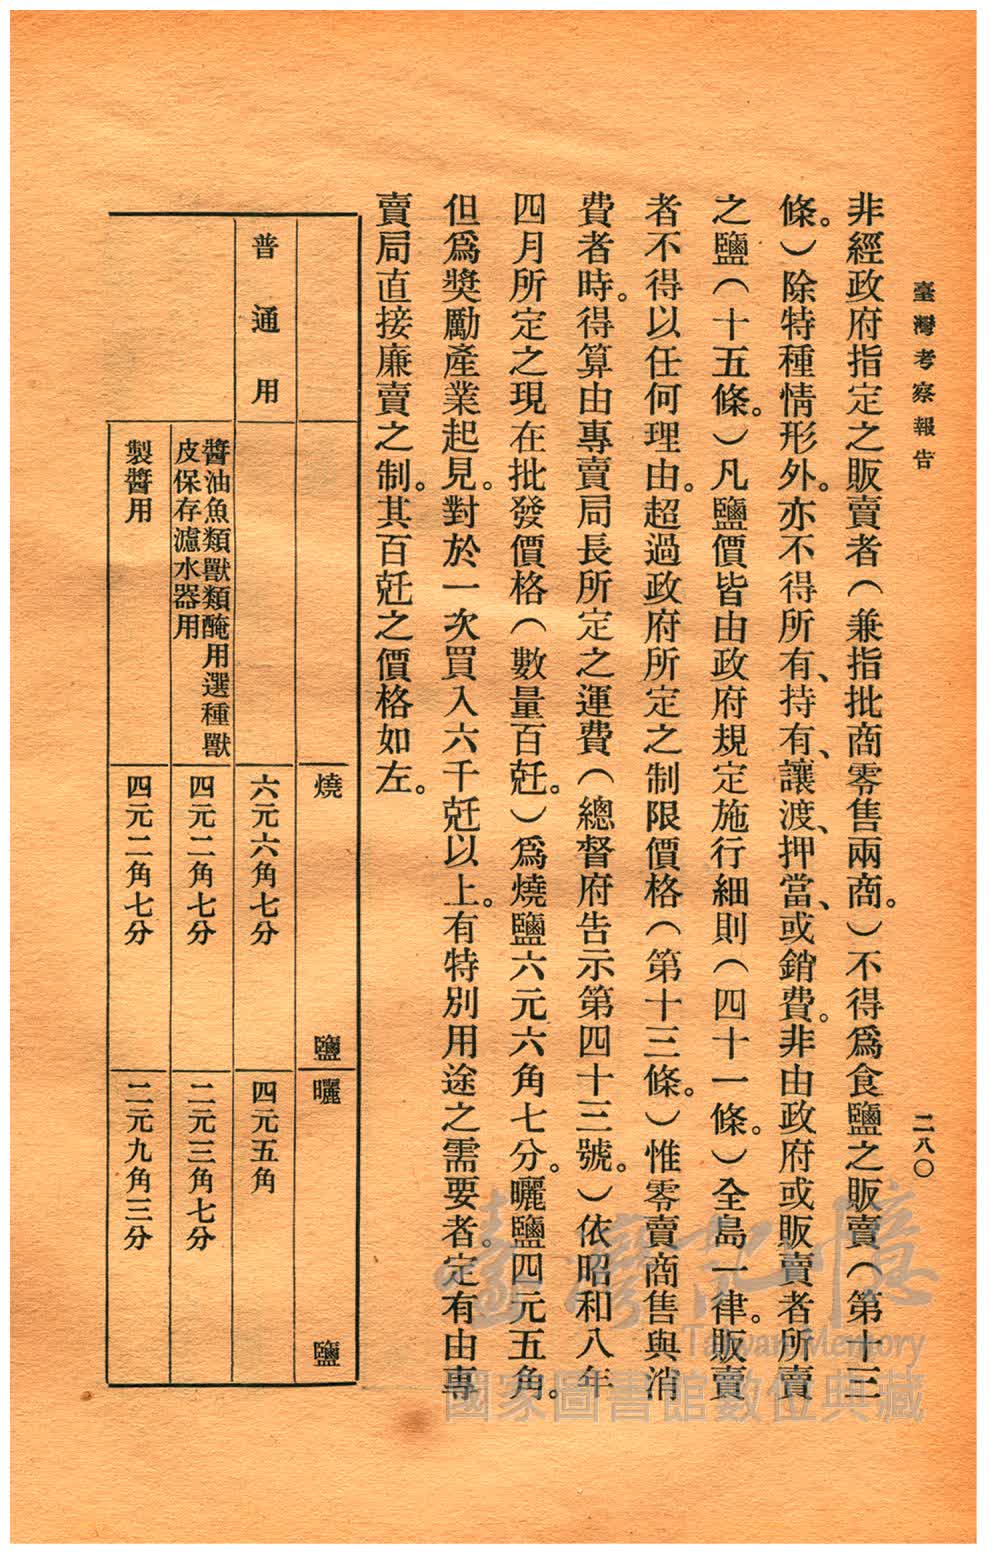 臺灣考察報告
二八〇
非經政府指定之販賣者（兼指批商零售兩商。）不得爲食鹽之販賣（第十三
條。）除特種情形外。亦不得所有、持有、讓渡、押當、或銷費。非由政府或販賣者所賣
之鹽（十五條。）凡鹽價皆由政府規定施行細則（四十一條。）全島一律。販賣
者不得以任何理由。超過政府所定之制限價格（第十三條。）惟零賣商售與消
費者時。得算由專賣局長所定之運費（總督府告示第四十三號。）依昭和八年
四月所定之現在批發價格（數量百兛。）爲燒鹽六元六角七分。曬鹽四元五角。
但爲獎勵產業起見。對於一次買入六千兛以上。有特別用途之需要者。定有由專
賣局直接廉賣之制。其百兛之價格如左。
燒鹽
曬鹽
普通用
六元六角七分
四元五角
醬油魚類獸類醃用選種獸
皮保存濾水器用
四元二角七分
二元三角七分
製醬用
四元二角七分
二元九角三分
臺灣記憶
Taiwan Memory
國家圖書館數位典藏